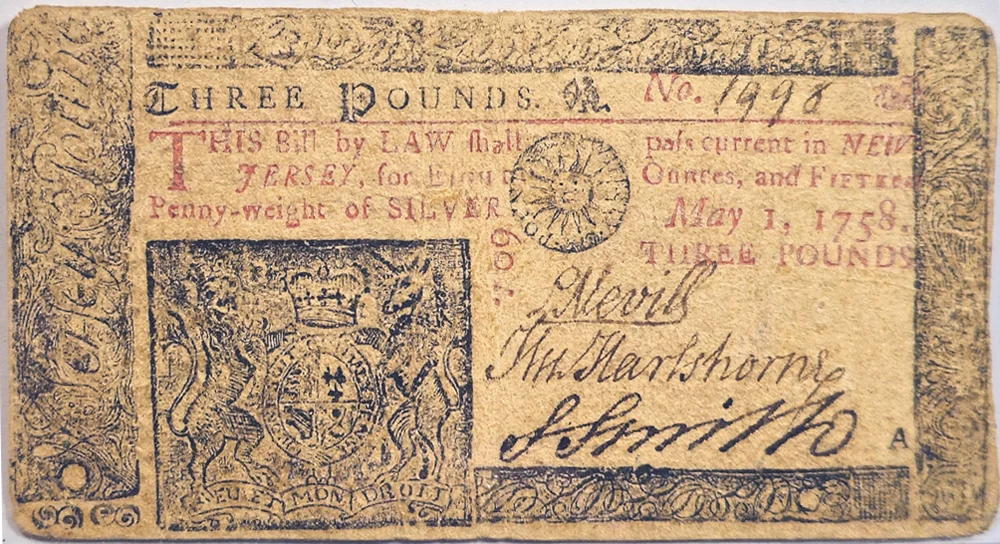 THREE POUNDS. No. 1998
THIS Bill by LAW shall pass current in NEW
JERSEY, for Ounces, and FIFTEEN
Penny-weight of SILVER May 1, 1758.
THREE POUNDS
Nevill
Hartshorne
S Smith
A
DIEU ET MON DROIT